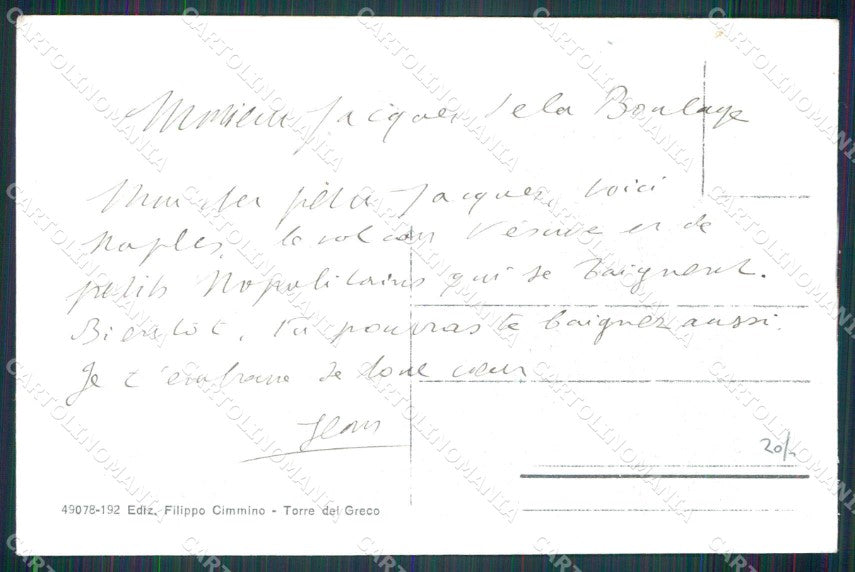 Monsieur Jacques de la Boulaye
Mon cher petit Jacques, voici
Naples, le volcan Vésuve et de
petits Napolitains qui se baignent.
Bientôt, tu pourras te baigner aussi.
Je t'embrasse de tout cœur
Jean
20/-
49078-192 Ediz. Filippo Cimmino - Torre del Greco
CARTOLINOMANIA